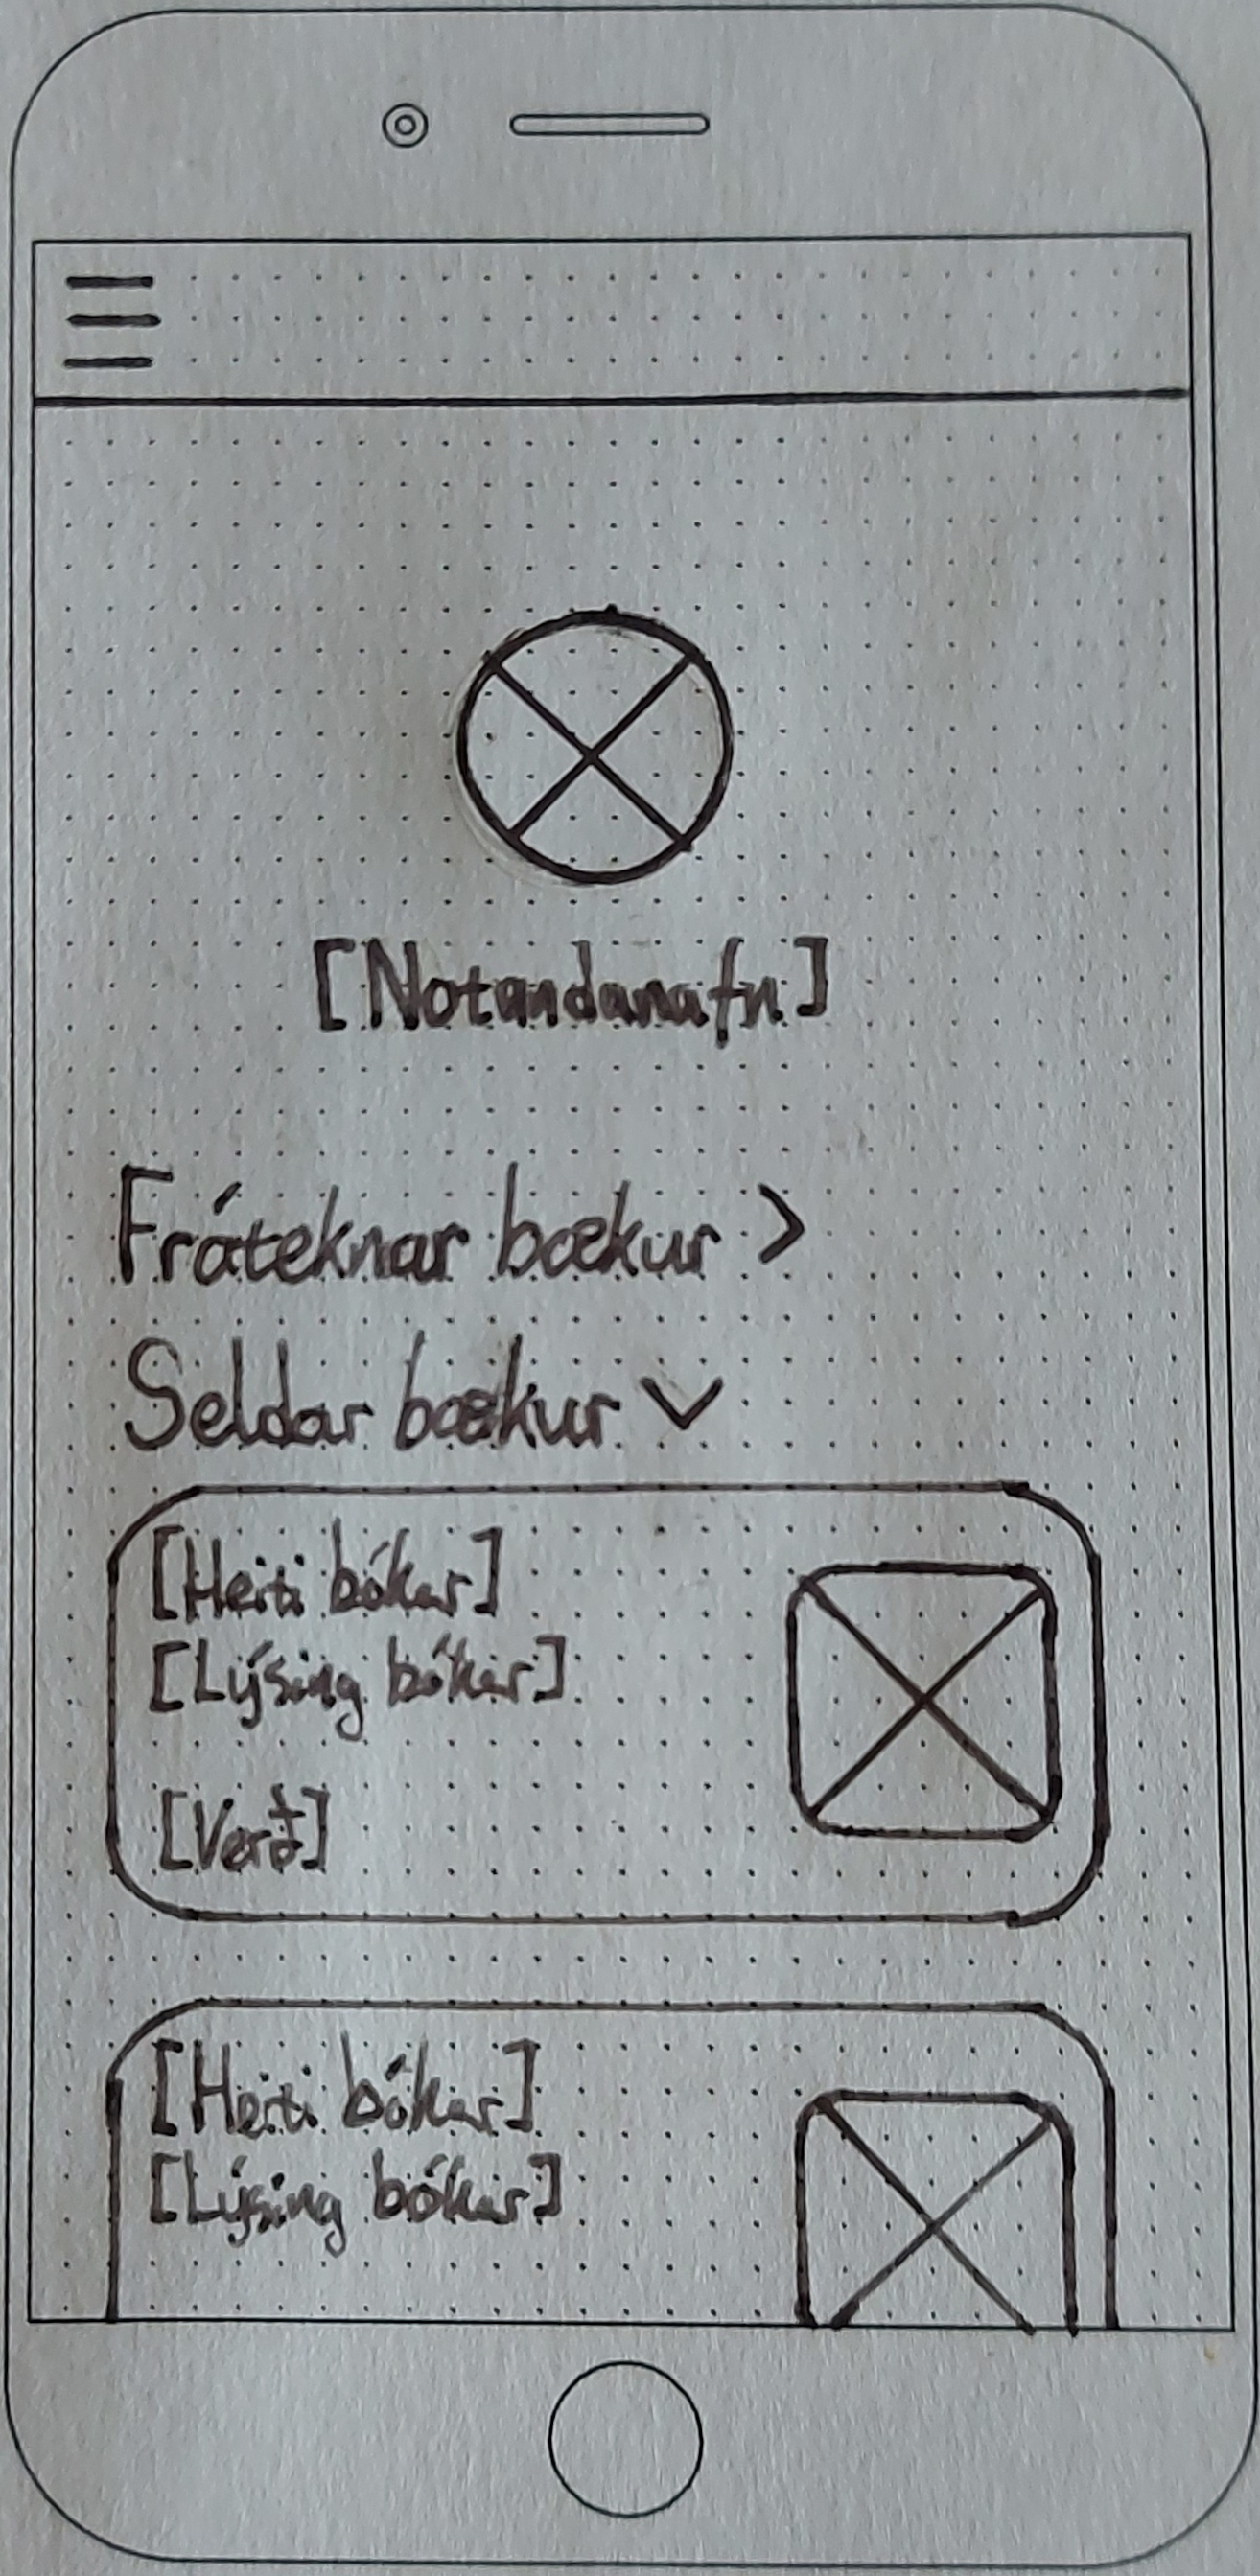 [Notandanafn]
Fráteknar bækur >
Seldar bækur
[Heiti bókar]
[Lýsing bókar]
[Verð]
[Heiti bókar]
[Lýsing bókar]